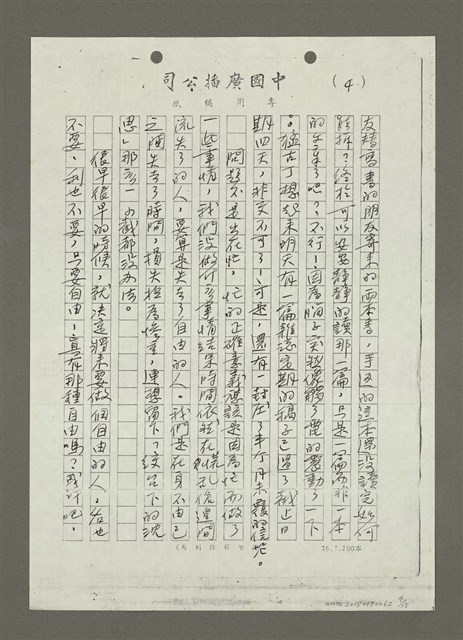 中國廣播公司
(4)
專用稿紙
友精寫書的朋友寄來的兩本書,手邊的這本還沒讀完如何
能拆?終於可以安安靜靜的讀那一篇,只是一篇而非一本
的坐下了吧?,不行!因為腦子突然像觸了電的震動了一下
。猛古丁想起來明天有一篇雜誌定期的稿子已過了截止日
期四天,非交不可了!可是,還有一封压了半个月未覆的信吔。
問題不是出在忙,忙的正確意義應該是因為忙而做了
一些事情,我們沒做什么事情結果時間依然在慌乱倥偬間
流失了的人,要算是失去了自由的人。我們是在身不由己
之間失去了時間,損失極為慘重,連想留下「紋台下的沈
思」那么一小截都沒办法。
很早很早的時候,就決定將來要做個自由的人,名也
不要,利也不要,只要自由!真有那種自由嗎?或許吧,
76.7.200本
NMTL20150190262